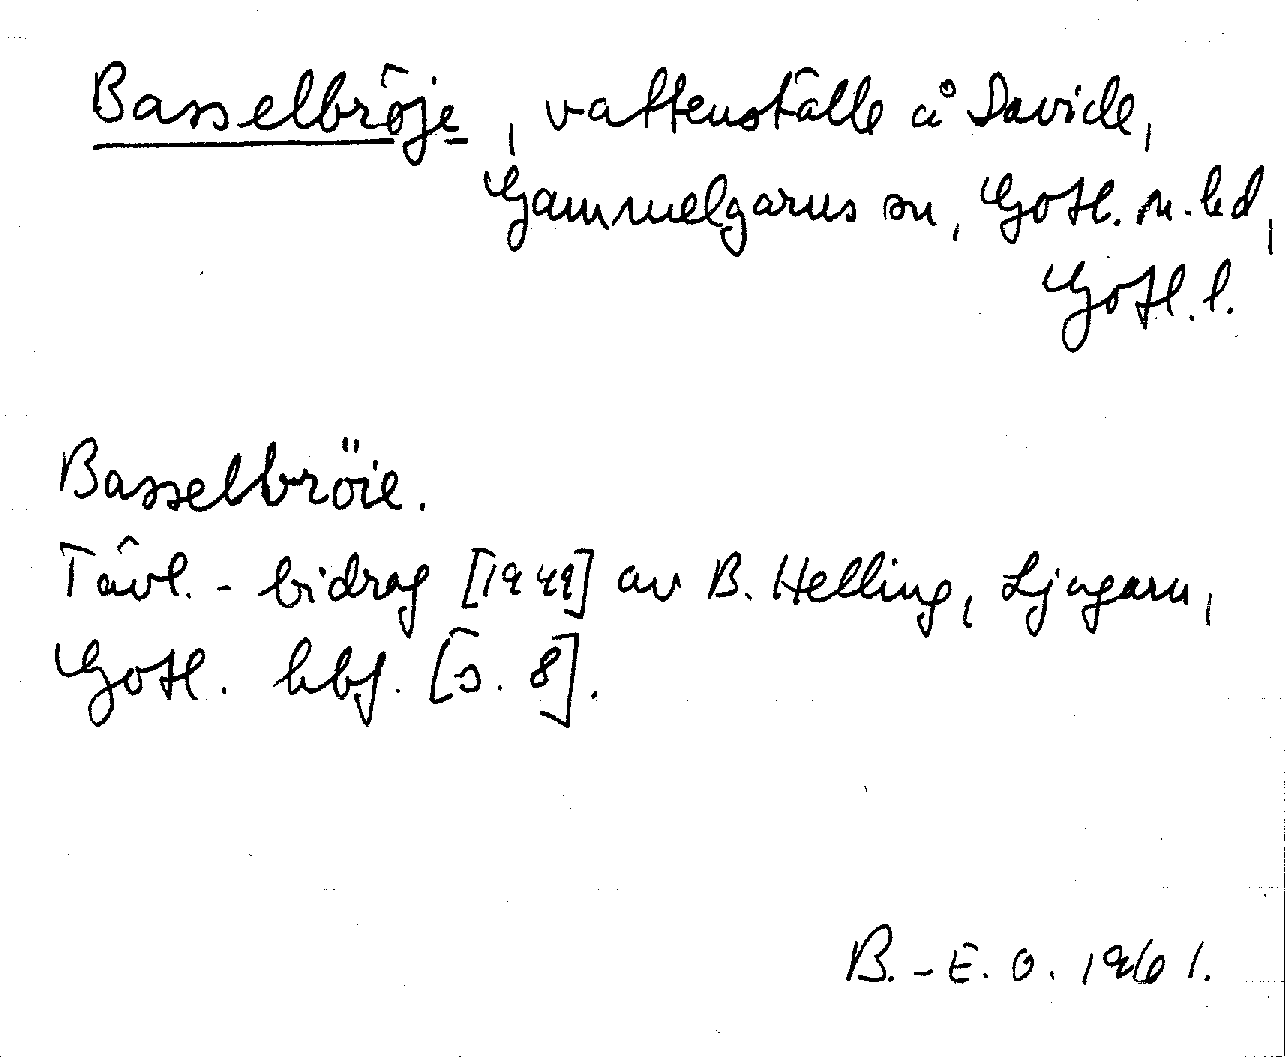 Basselbröje, vattenställe å Davide,
Gammelgarns sn, Gotl. n. hd,
Gotl. l.
Basselbröie.
Tävl.-bidrag [1949] av B. Helling, Ljugarn,
Gotl. hbf. [s. 8].
B.-E. O. 1961.